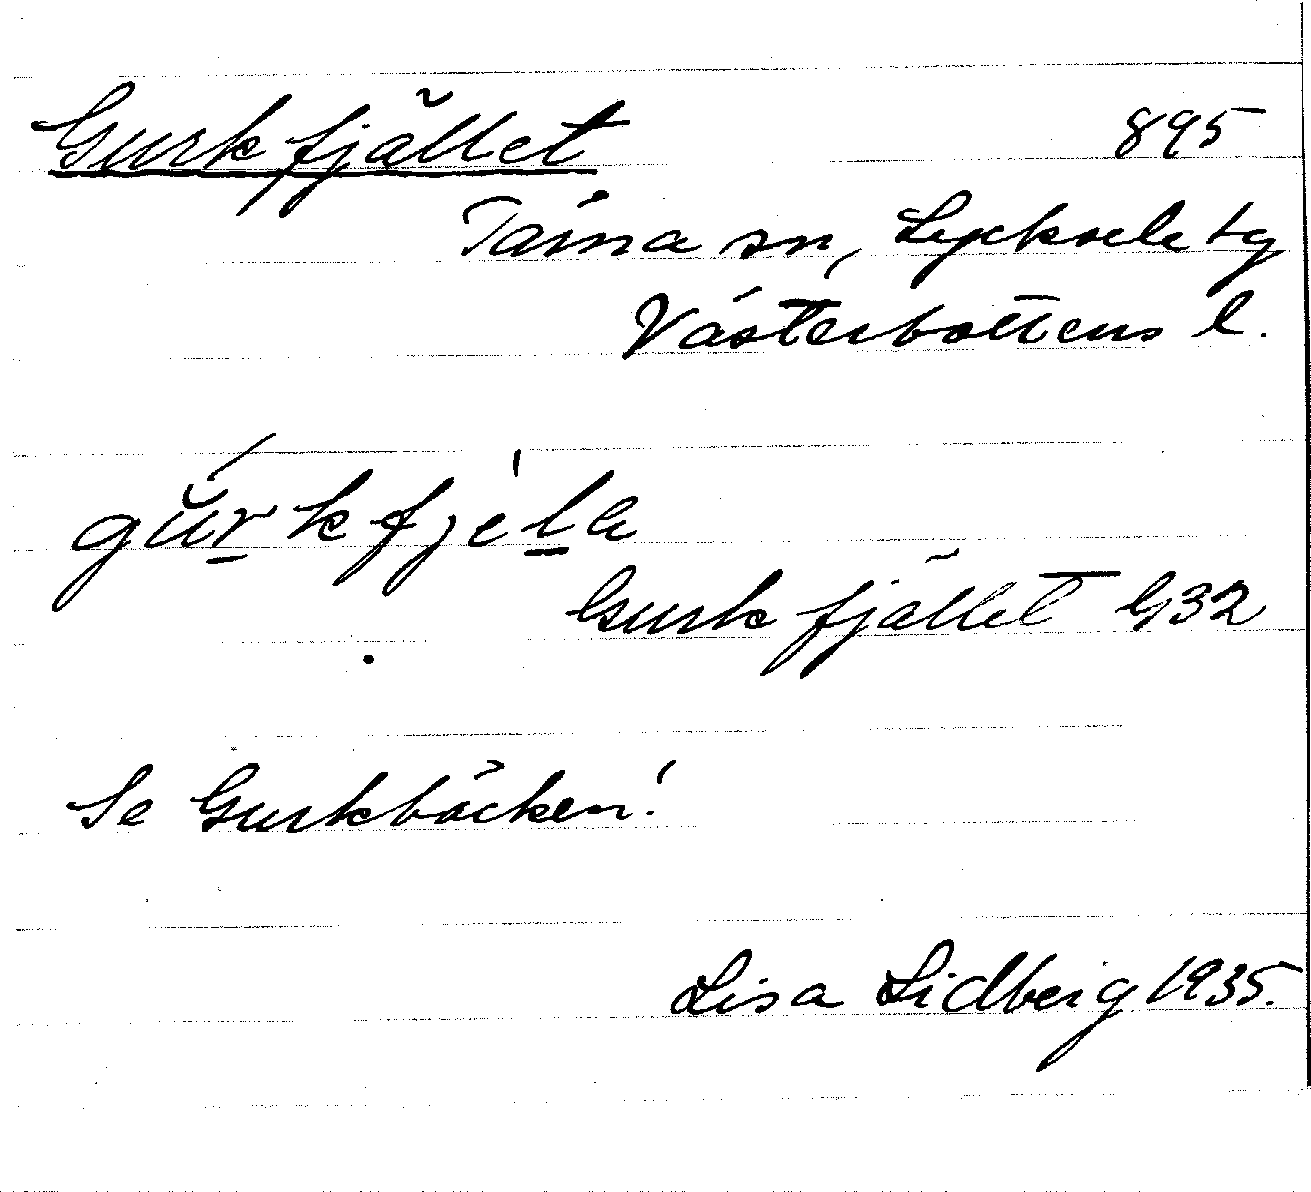 Gurkfjället 895
Tärna sn, Lycksele tg
Västerbottens l.
gŭrkfjela
Gurkfjället G32
Se Gurkbäcken!
Lisa Lidberg 1935.